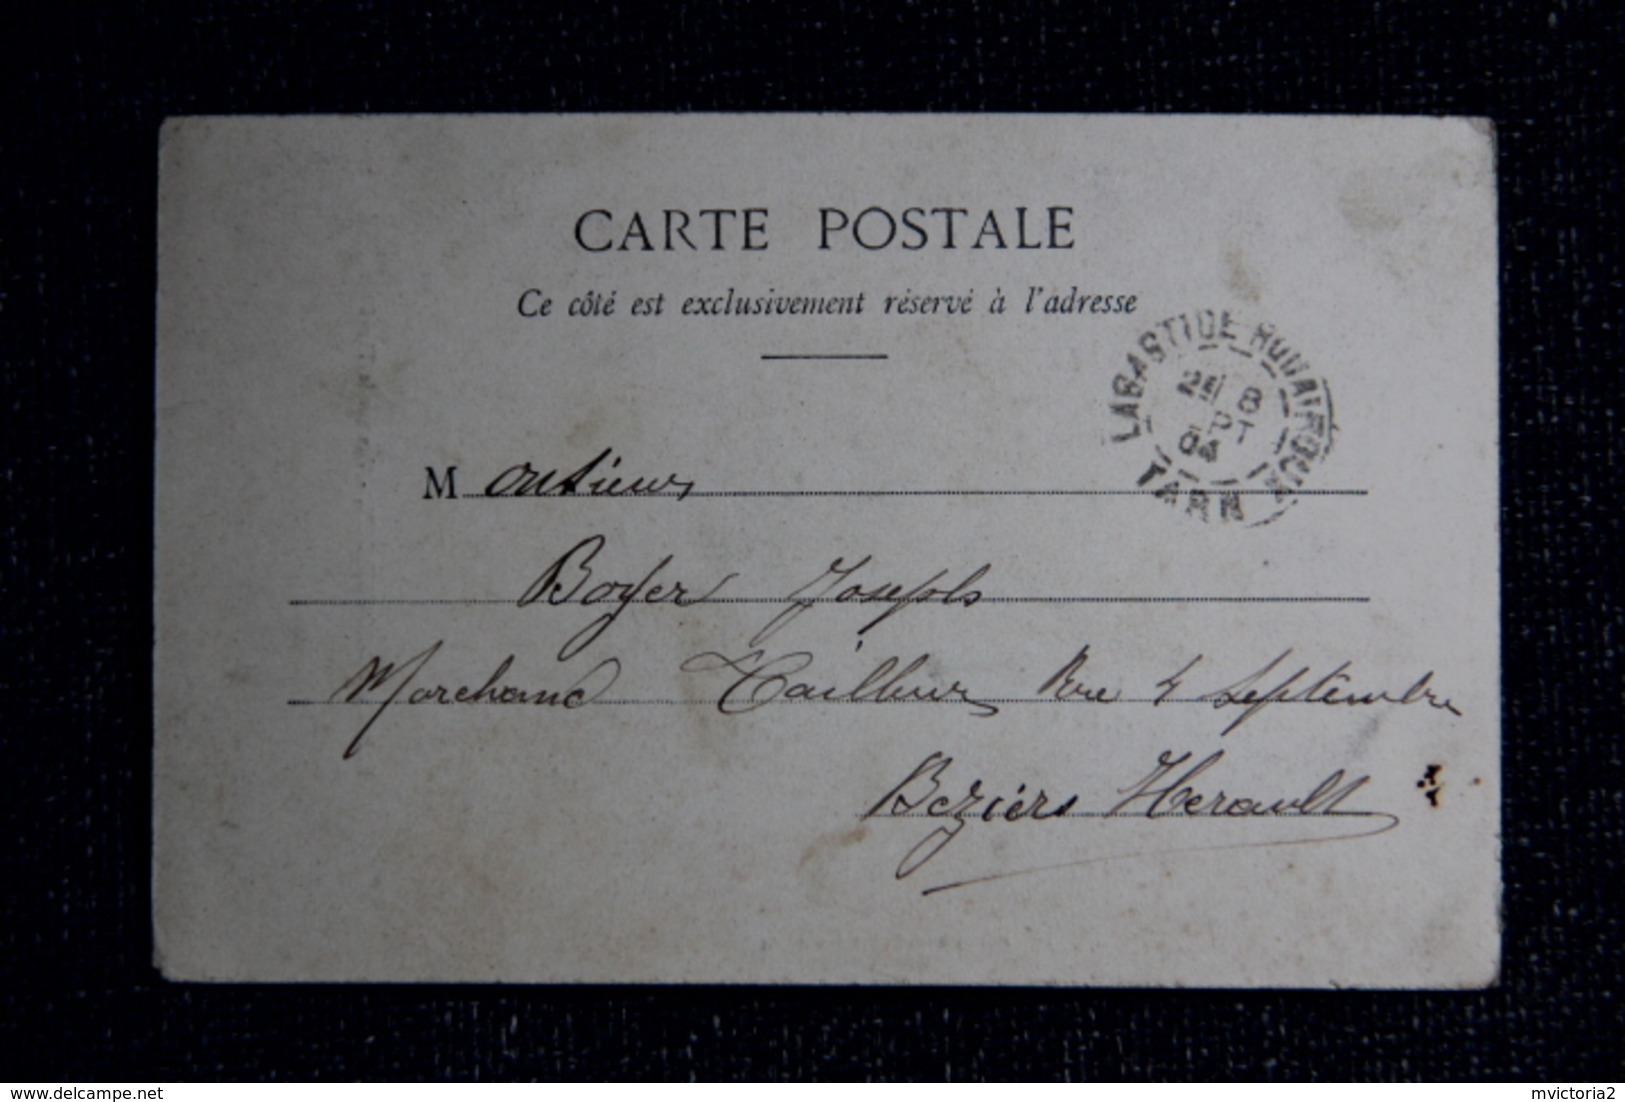 CARTE POSTALE
Ce côté est exclusivement réservé à l'adresse
LABASTIDE ROUAIROUX
8
04
TARN
Monsieur
Boyer Joseph
Marchand Tailleur Rue 4 Septembre
Beziérs Herault
delcampe.net
mvictoria2